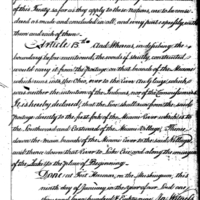 of this Treaty so far as they apply to these nations, are to be consi-
dered as made and concluded in all, and every part expressly with
them and each of them.
Article 15th And Whereas, in describing the
boundary before mentioned, the words if strictly constructed
would carry it from the Portage on that branch of the Miami
which runs into the Ohio, over to the River
was neither the intention of the Indians, nor of the Commissioners
It is hereby declared, that the Line shall run from the said
Portage directly to the first fork of the Miami River which is to
the Southward and Eastward of the Miami Village, Thence
down the main branch of the Miami river to the said Village
and thence down that River to Lake Erie and along the margin
of the Lake to the place of Beginning.
Done at Fort Harmar, on the Muskingum, this
ninth day of January in the year of our Lord one
thousand seven hundred &amp; Eighty nine In Witness